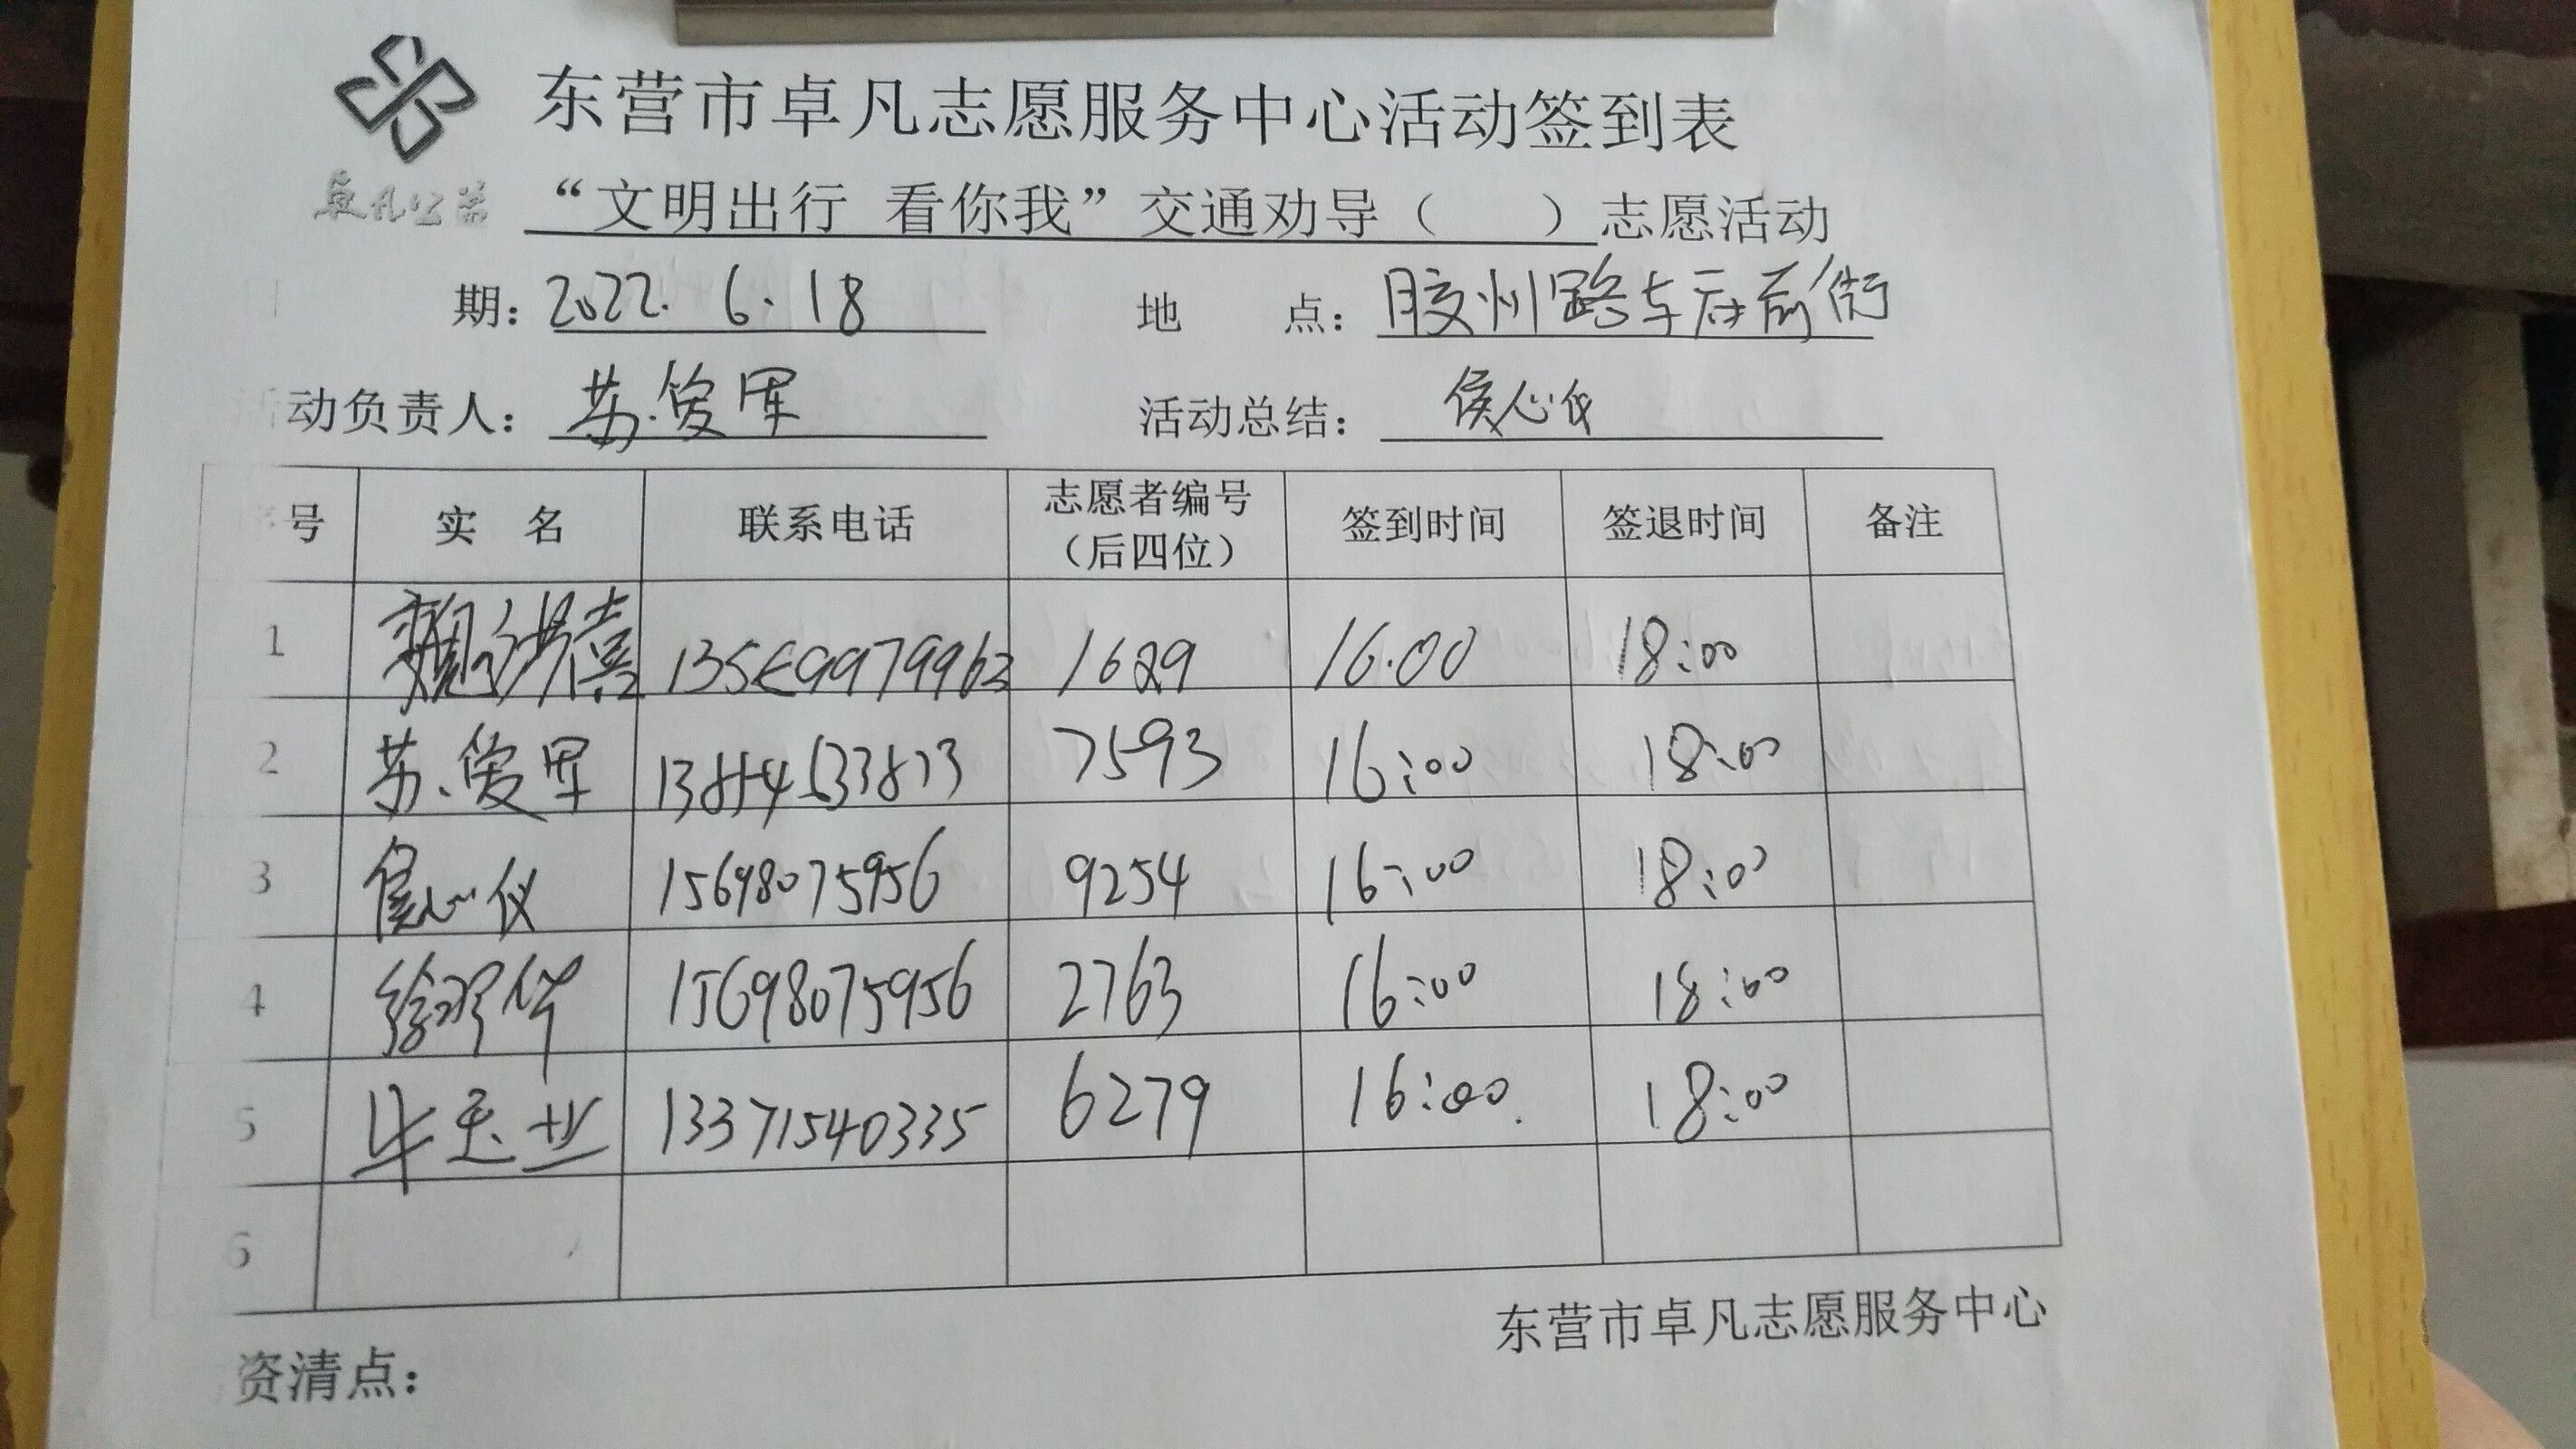 东营市卓凡志愿服务中心活动签到表
卓凡公益
“文明出行 看你我”交通劝导（ ）志愿活动
期：2022.6.18 地 点：胶州路与府前街
活动负责人：苏爱军 活动总结：侯心仪
序号 实 名 联系电话 志愿者编号（后四位） 签到时间 签退时间 备注
1 1629 16.00 18:00
2 苏爱军 7593 16:00 18:00
3 侯心仪 15698075956 9254 16:00 18:00
4 15698075956 2763 16:00 18:00
5 13371540335 6279 16:00 18:00
6
东营市卓凡志愿服务中心
资清点：